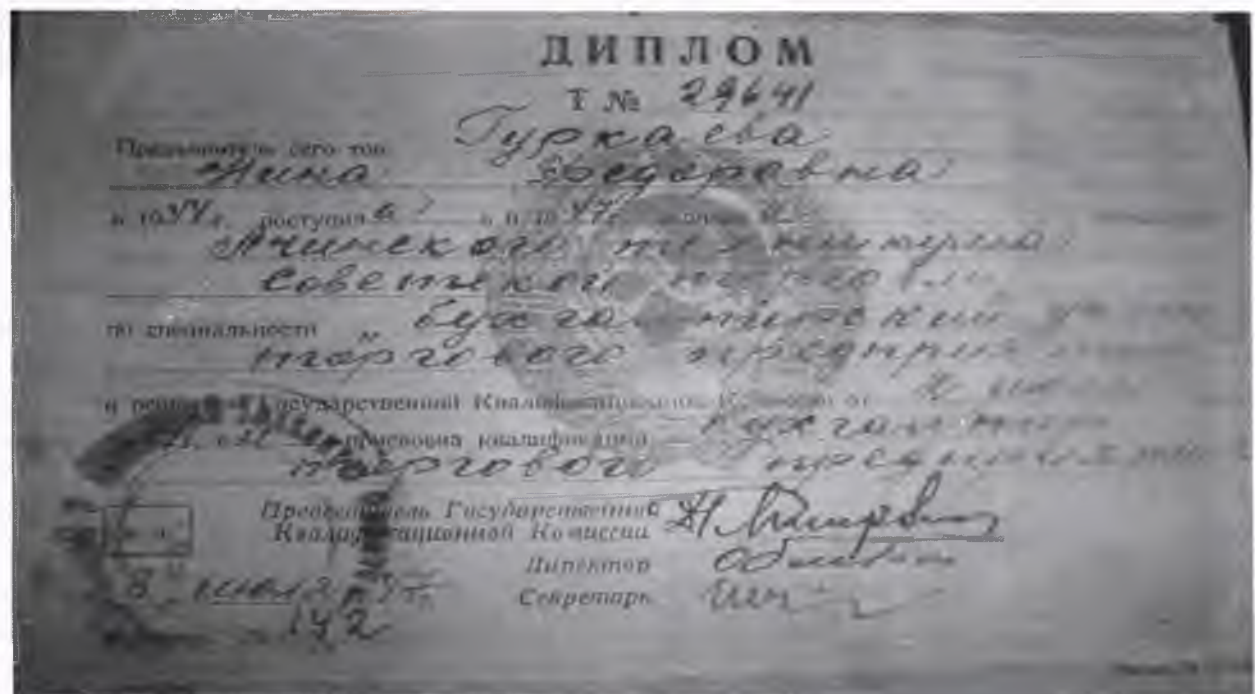 ДИПЛОМ
Т № 29641
Предъявитель сего тов. Гуркаева
Нина Федоровна
в 1944 г. поступила в 1947 г.
Ачинского техникума
советской торговли
по специальности „бухгалтерский учет
торгового предприятия
и решением Государственной Квалификационной Комиссии от
присвоена квалификация бухгалтер
торгового предприятия
Председатель Государственной
Квалификационной Комиссии
Директор
8 июля 1947 г. Секретарь
142